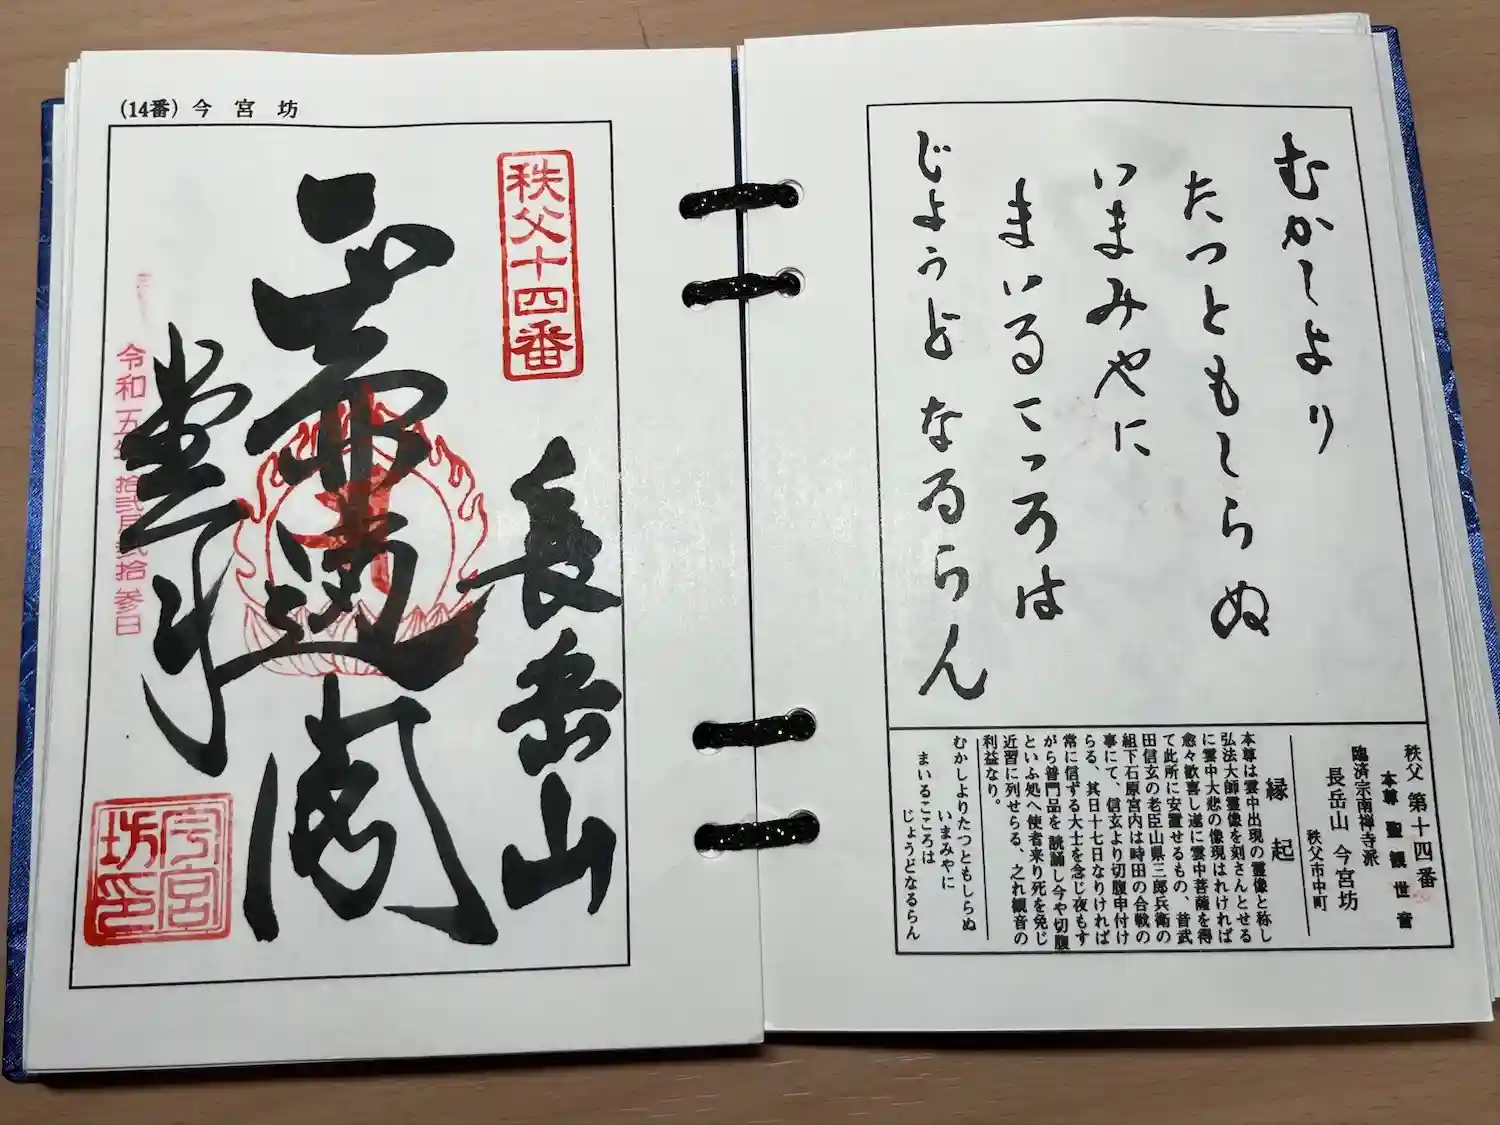 むかしより
たつともしらぬ
いまみやに
まいるこころは
じょうどなるらん
秩父 第十四番
本尊 聖観世音
臨済宗南禅寺派
長岳山 今宮坊
秩父市中町
縁起
本尊は雲中出現の霊像と称し
弘法大師霊像を刻さんとせる
に雲中大悲の像現はれければ
愈々歓喜し遂に雲中菩薩を得
て此所に安置せるもの、昔武
田信玄の老臣山県三郎兵衛の
組下石原宮内は時田の合戦の
事にて、信玄より切腹申付け
らる、其日十七日なりければ
常に信ずる大士を念じ夜もす
がら普門品を読誦し今や切腹
といふ処へ使者来り死を免じ
近習に列せらる、之れ観音の
利益なり。
むかしよりたつともしらぬ
いまみやに
まいるこころは
じょうどなるらん
(14番) 今宮坊
秩父十四番
長岳山
令和五年拾弐月弐拾参日
今宮坊印